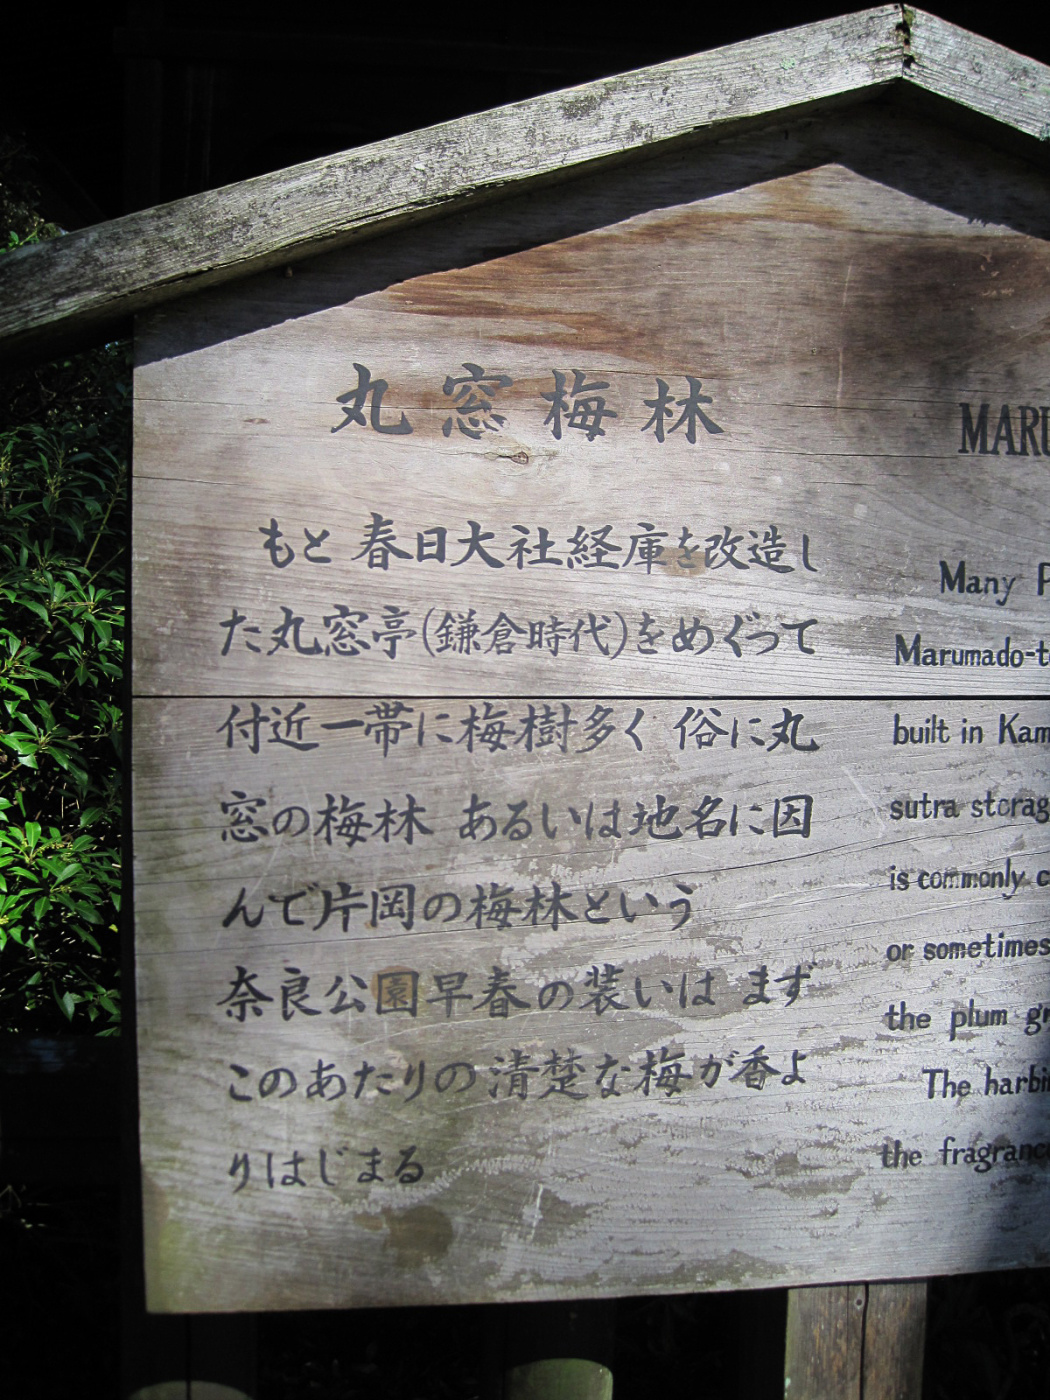 丸窓梅林
もと 春日大社経庫を改造し
た丸窓亭(鎌倉時代)をめぐって
付近一帯に梅樹多く 俗に丸
窓の梅林 あるいは地名に因
んで片岡の梅林という
奈良公園早春の装いは まず
このあたりの清楚な梅が香よ
りはじまる
MARU
Many P
Marumado-t
built in Kam
sutra storag
is commonly c
or sometimes
the plum gr
The harbin
the fragrance